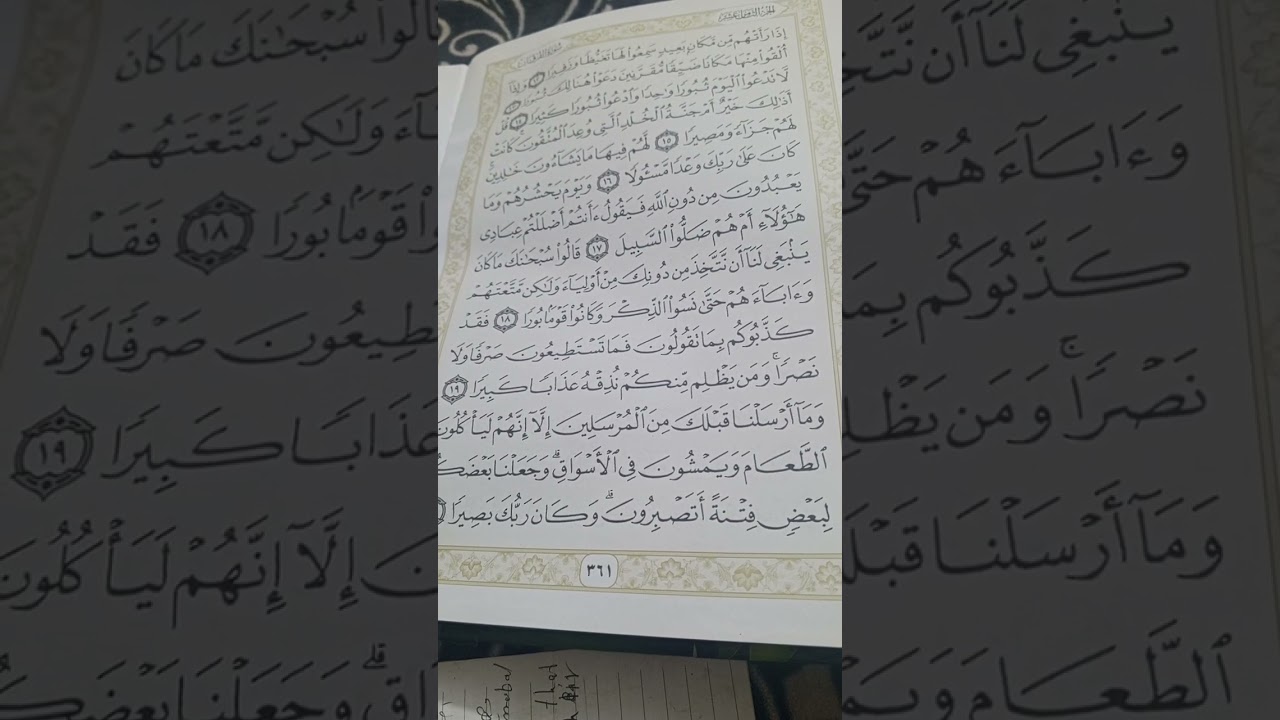 الجزء الثامن عشر
سورة الفرقان
إِذَا رَأَتْهُم مِّن مَّكَانٍ بَعِيدٍ سَمِعُوا۟ لَهَا تَغَيُّظًا وَزَفِيرًا ١٢ وَإِذَآ
أُلْقُوا۟ مِنْهَا مَكَانًا ضَيِّقًا مُّقَرَّنِينَ دَعَوْا۟ هُنَالِكَ ثُبُورًا ١٣
لَّا تَدْعُوا۟ ٱلْيَوْمَ ثُبُورًا وَٰحِدًا وَٱدْعُوا۟ ثُبُورًا كَثِيرًا ١٤ قُلْ
أَذَٰلِكَ خَيْرٌ أَمْ جَنَّةُ ٱلْخُلْدِ ٱلَّتِى وُعِدَ ٱلْمُتَّقُونَ ۚ كَانَتْ
لَهُمْ جَزَآءً وَمَصِيرًا ١٥ لَّهُمْ فِيهَا مَا يَشَآءُونَ خَٰلِدِينَ ۚ
كَانَ عَلَىٰ رَبِّكَ وَعْدًا مَّسْـُٔولًا ١٦ وَيَوْمَ يَحْشُرُهُمْ وَمَا
يَعْبُدُونَ مِن دُونِ ٱللَّهِ فَيَقُولُ ءَأَنتُمْ أَضْلَلْتُمْ عِبَادِى
هَٰٓؤُلَآءِ أَمْ هُمْ ضَلُّوا۟ ٱلسَّبِيلَ ١٧ قَالُوا۟ سُبْحَٰنَكَ مَا كَانَ
يَنۢبَغِى لَنَآ أَن نَّتَّخِذَ مِن دُونِكَ مِنْ أَوْلِيَآءَ وَلَٰكِن مَّتَّعْتَهُمْ
وَءَابَآءَهُمْ حَتَّىٰ نَسُوا۟ ٱلذِّكْرَ وَكَانُوا۟ قَوْمًۢا بُورًا ١٨ فَقَدْ
كَذَّبُوكُم بِمَا تَقُولُونَ فَمَا تَسْتَطِيعُونَ صَرْفًا وَلَا
نَصْرًا ۚ وَمَن يَظْلِم مِّنكُمْ نُذِقْهُ عَذَابًا كَبِيرًا ١٩
وَمَآ أَرْسَلْنَا قَبْلَكَ مِنَ ٱلْمُرْسَلِينَ إِلَّآ إِنَّهُمْ لَيَأْكُلُونَ
ٱلطَّعَامَ وَيَمْشُونَ فِى ٱلْأَسْوَاقِ ۗ وَجَعَلْنَا بَعْضَكُ
لِبَعْضٍ فِتْنَةً أَتَصْبِرُونَ ۗ وَكَانَ رَبُّكَ بَصِيرًا
٣٦١
that